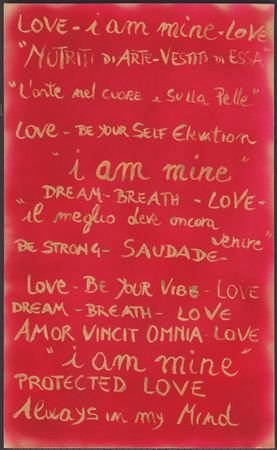 LOVE - i am mine - LOVE
"NUTRITI DI ARTE - VESTITI DI ESSA"
"L'arte nel cuore e sulla Pelle"
LOVE - BE YOUR SELF Elevation
"i am mine"
DREAM - BREATH - LOVE -
"il meglio deve ancora
venire"
BE STRONG - SAUDADE -
LOVE - BE YOUR VIBE - LOVE
DREAM - BREATH - LOVE
AMOR VINCIT OMNIA - LOVE
"i am mine"
PROTECTED LOVE
Always in my Mind